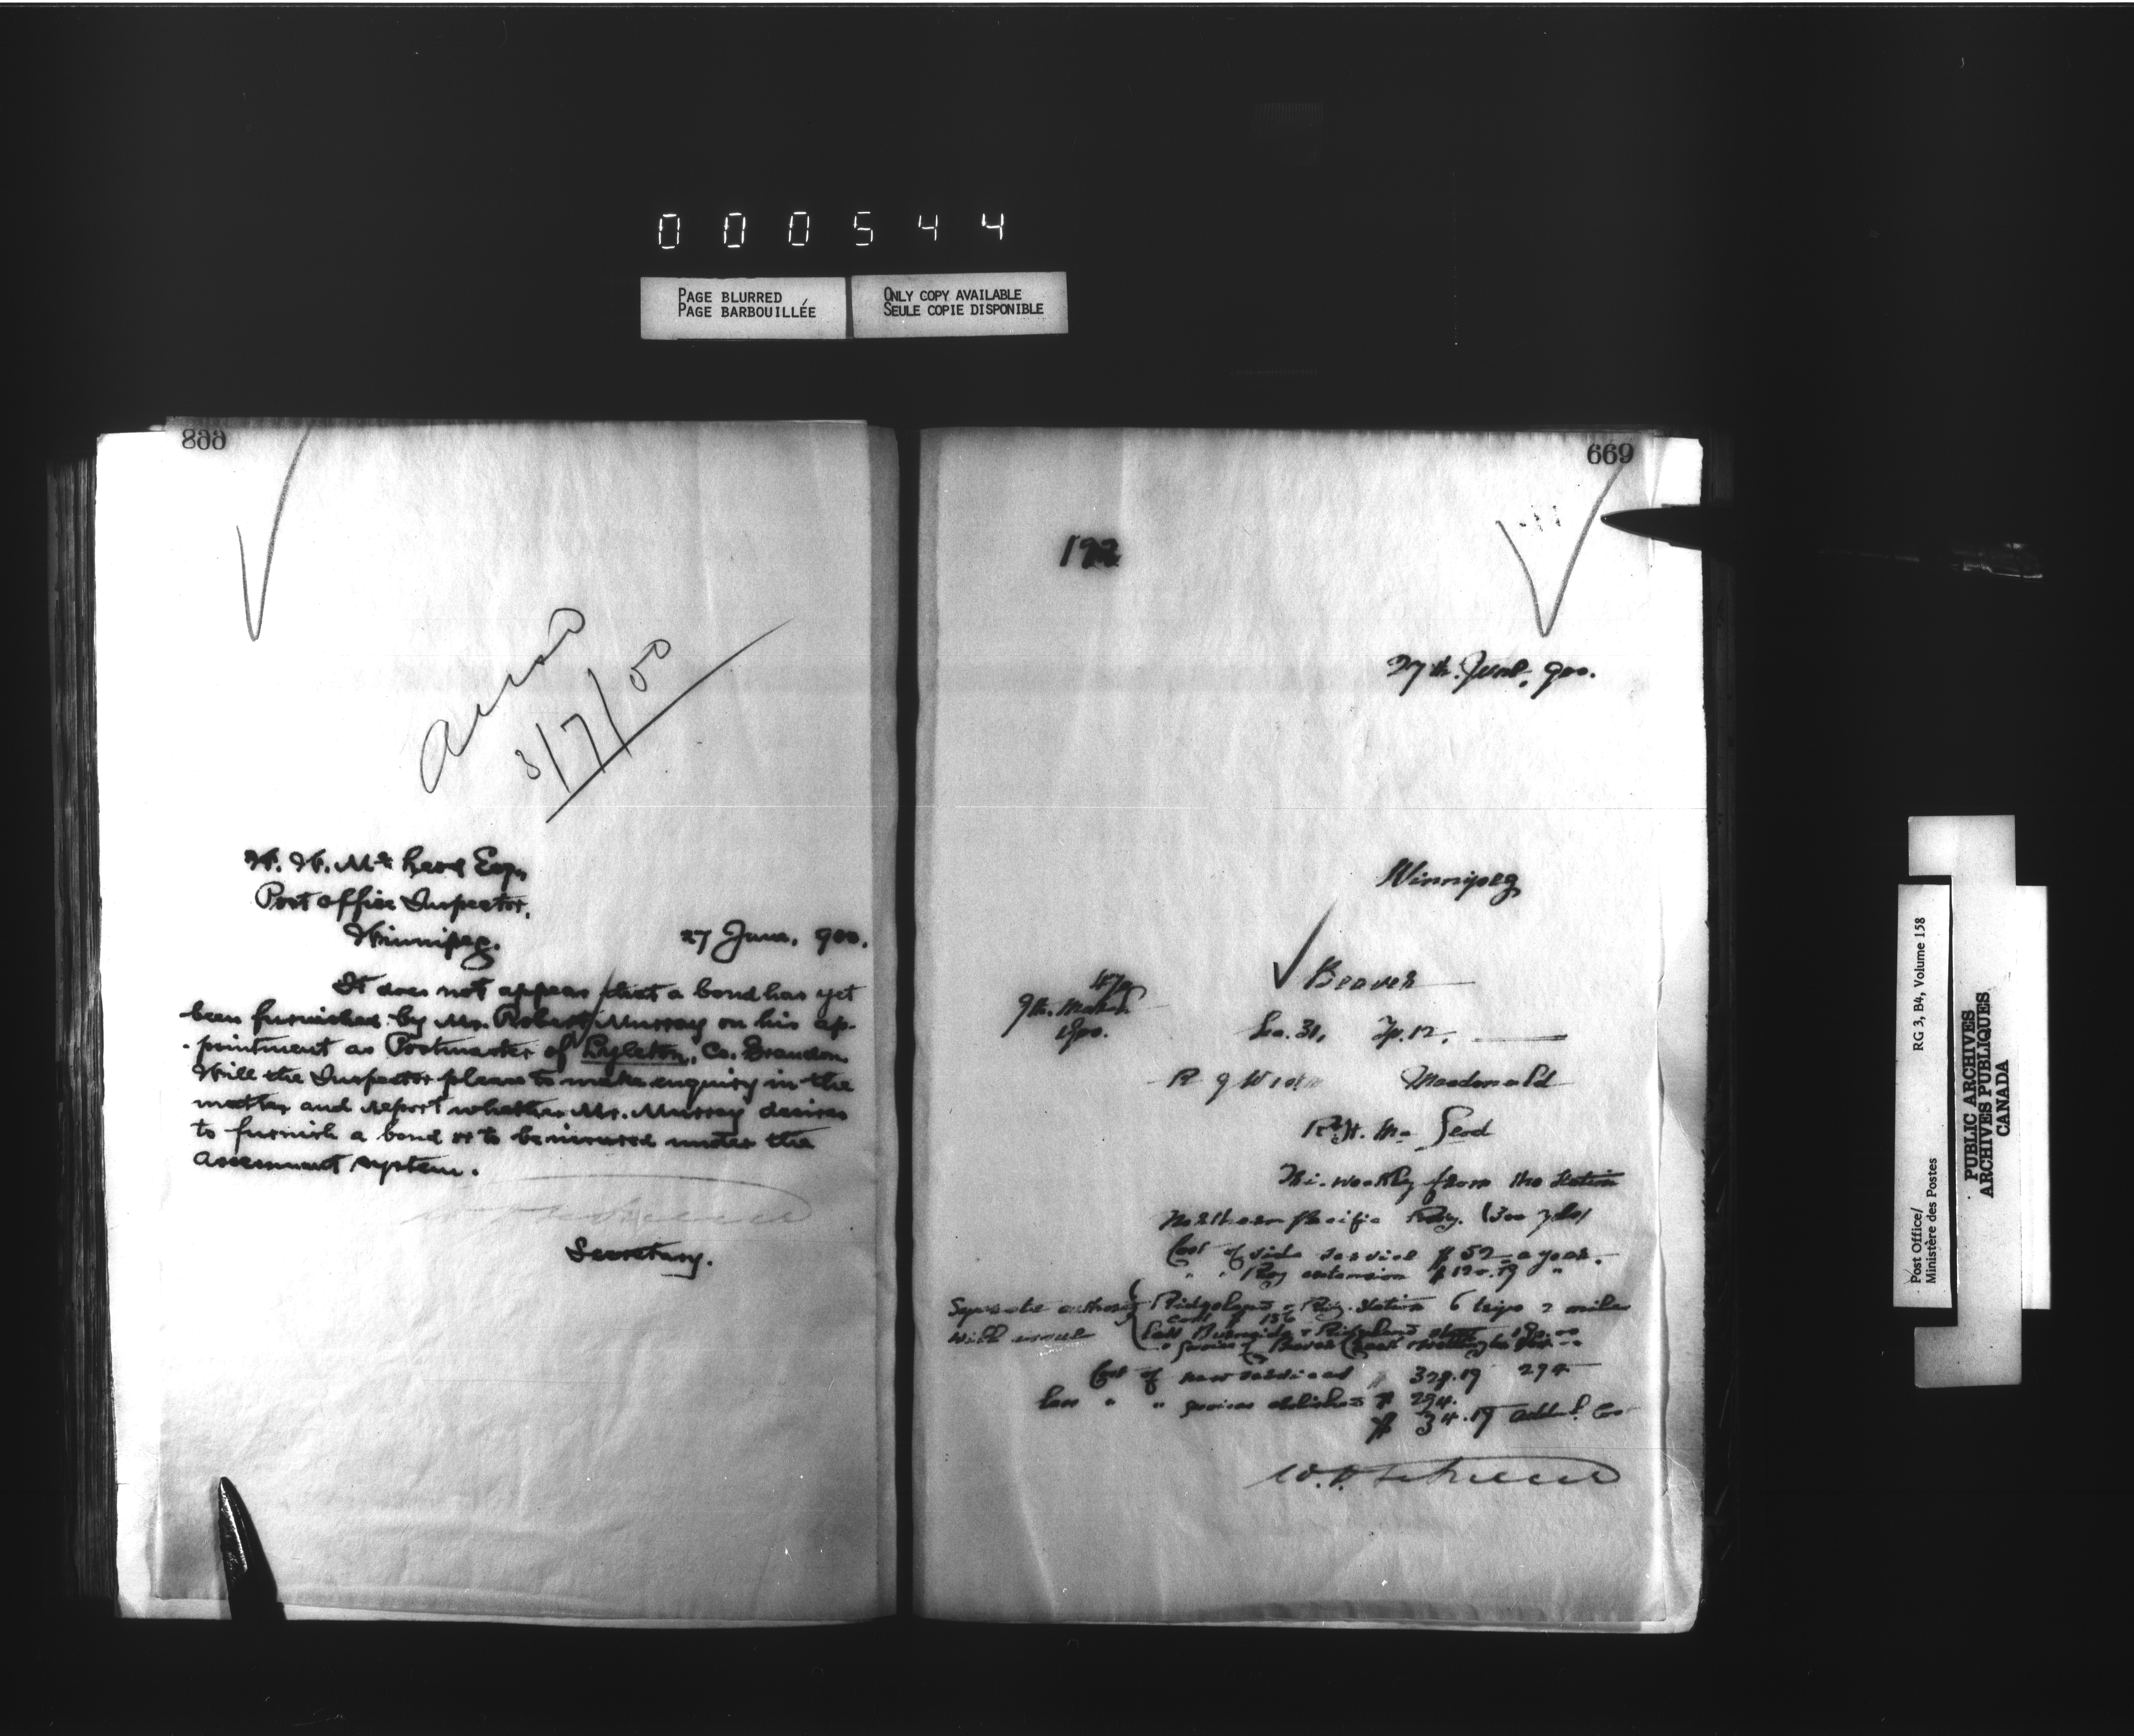 000544
PAGE BLURRED
PAGE BARBOUILLÉE
ONLY COPY AVAILABLE
SEULE COPIE DISPONIBLE
668
8/7/00
W. W. McLeod Esq.
Post Office Inspector,
Winnipeg.
27 June, 900.
It does not appear that a bond has yet
been furnished by Mr. Robert Murray on his ap-
-pointment as Postmaster of Lyleton, Co. Brandon.
Will the Inspector please to make enquiry in the
matter and report whether Mr. Murray desires
to furnish a bond or to be insured under the
assessment system.
Secretary.
669
192
27th. June, 900.
Winnipeg
Beaver
9th. March
1900.
Sec. 31, Tp. 12,
Macdonald
McLeod
Tri-weekly from the Station
Northern Pacific Ry. (300 yds)
Cost of side service $52 = a year.
" " Ry extension $120.19 "
Separate authority
will issue
Ridgeland & Ry. Station 6 trips 2 miles
cost $ 156
Less Burnside & Ridgeland
" Service of Beaver Creek
Cost of new services $ 328.19 294
Less " " services abolished $ 294.
$ 34.19 addnl. Cost
Post Office/
Ministère des Postes
RG 3, B4, Volume 158
PUBLIC ARCHIVES
ARCHIVES PUBLIQUES
CANADA